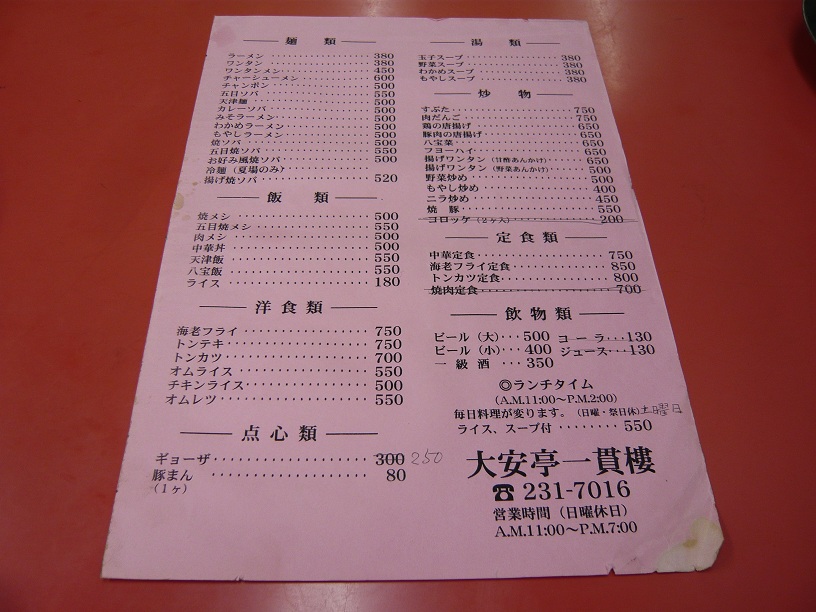 麺類
ラーメン 380
ワンタン 380
ワンタンメン 450
チャーシューメン 600
チャンポン 500
五目ソバ 550
天津麺 500
カレーソバ 500
みそラーメン 500
わかめラーメン 500
もやしラーメン 500
焼ソバ 500
五目焼ソバ 550
お好み風焼ソバ 500
冷麺(夏場のみ)
揚げ焼ソバ 520
飯類
焼メシ 500
五目焼メシ 550
肉メシ 500
中華丼 500
天津飯 550
八宝飯 550
ライス 180
洋食類
海老フライ 750
トンテキ 750
トンカツ 700
オムライス 550
チキンライス 500
オムレツ 550
点心類
ギョーザ 300 250
豚まん 80
(1ヶ)
湯類
玉子スープ 380
野菜スープ 380
わかめスープ 380
もやしスープ 380
炒物
すぶた 750
肉だんご 750
鶏の唐揚げ 650
豚肉の唐揚げ 650
八宝菜 650
フヨーハイ 650
揚げワンタン(甘酢あんかけ) 650
揚げワンタン(野菜あんかけ) 500
野菜炒め 500
もやし炒め 400
ニラ炒め 450
焼豚 550
コロッケ(2ヶ入) 200
定食類
中華定食 750
海老フライ定食 850
トンカツ定食 800
焼肉定食 700
飲物類
ビール(大)…500 コーラ…130
ビール(小)…400 ジュース…130
一級酒…350
◎ランチタイム
(A.M.11:00〜P.M.2:00)
毎日料理が変ります。(日曜・祭日休)土曜日
ライス、スープ付 550
大安亭一貫樓
☎231-7016
営業時間(日曜休日)
A.M.11:00〜P.M.7:00